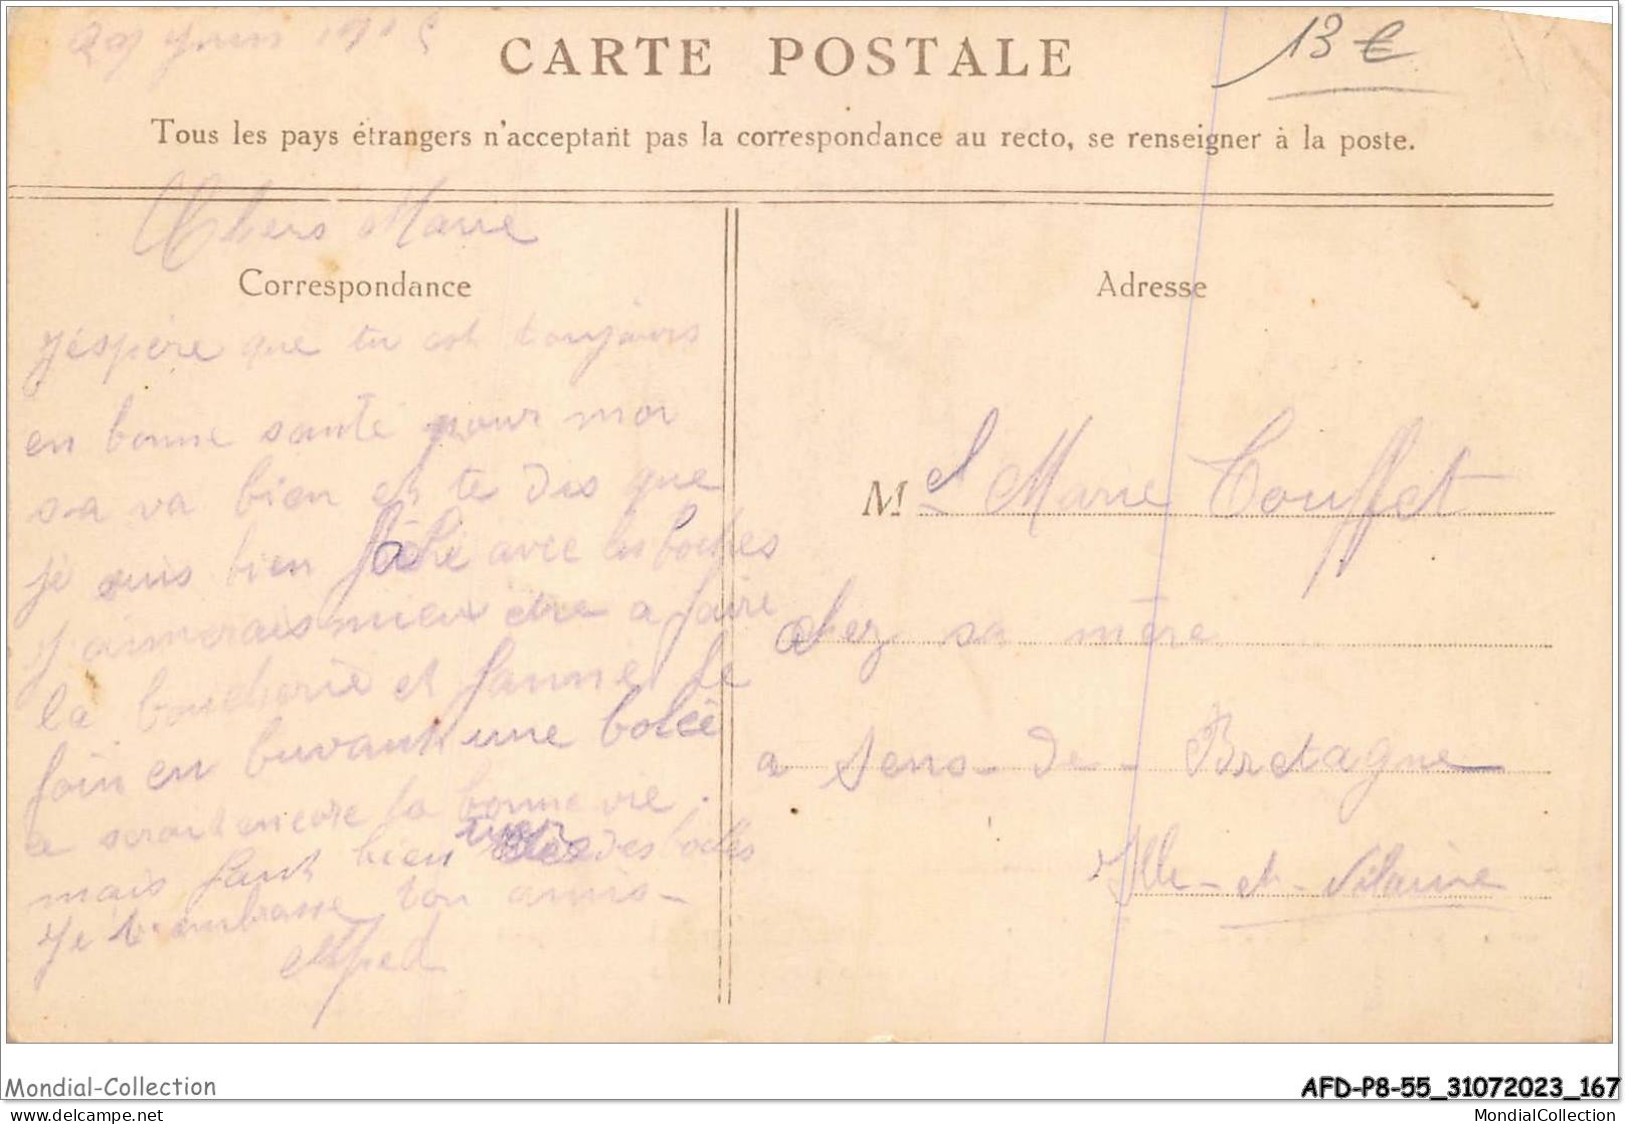 29 juin 1915
13 €
CARTE POSTALE
Tous les pays étrangers n'acceptant pas la correspondance au recto, se renseigner à la poste.
Chers Marie
Correspondance
J'éspère que tu est toujours
en bonne santé pour moi
sa va bien et te dis que
je suis bien fâché avec les boches
J'aimerais mieux etre a faire
la boucherie et fanner le
foin en buvant une bolée
a serait encore la bonne vie.
mais faut bien tuer des boches
Je t'embrasse ton amis-
Alfred
Adresse
M el Marie Touffet
chez sa mère
a Sens-de-Bretagne
Ille-et-Vilaine
Mondial-Collection
www.delcampe.net
AFD-P8-55_31072023_167
MondialCollection